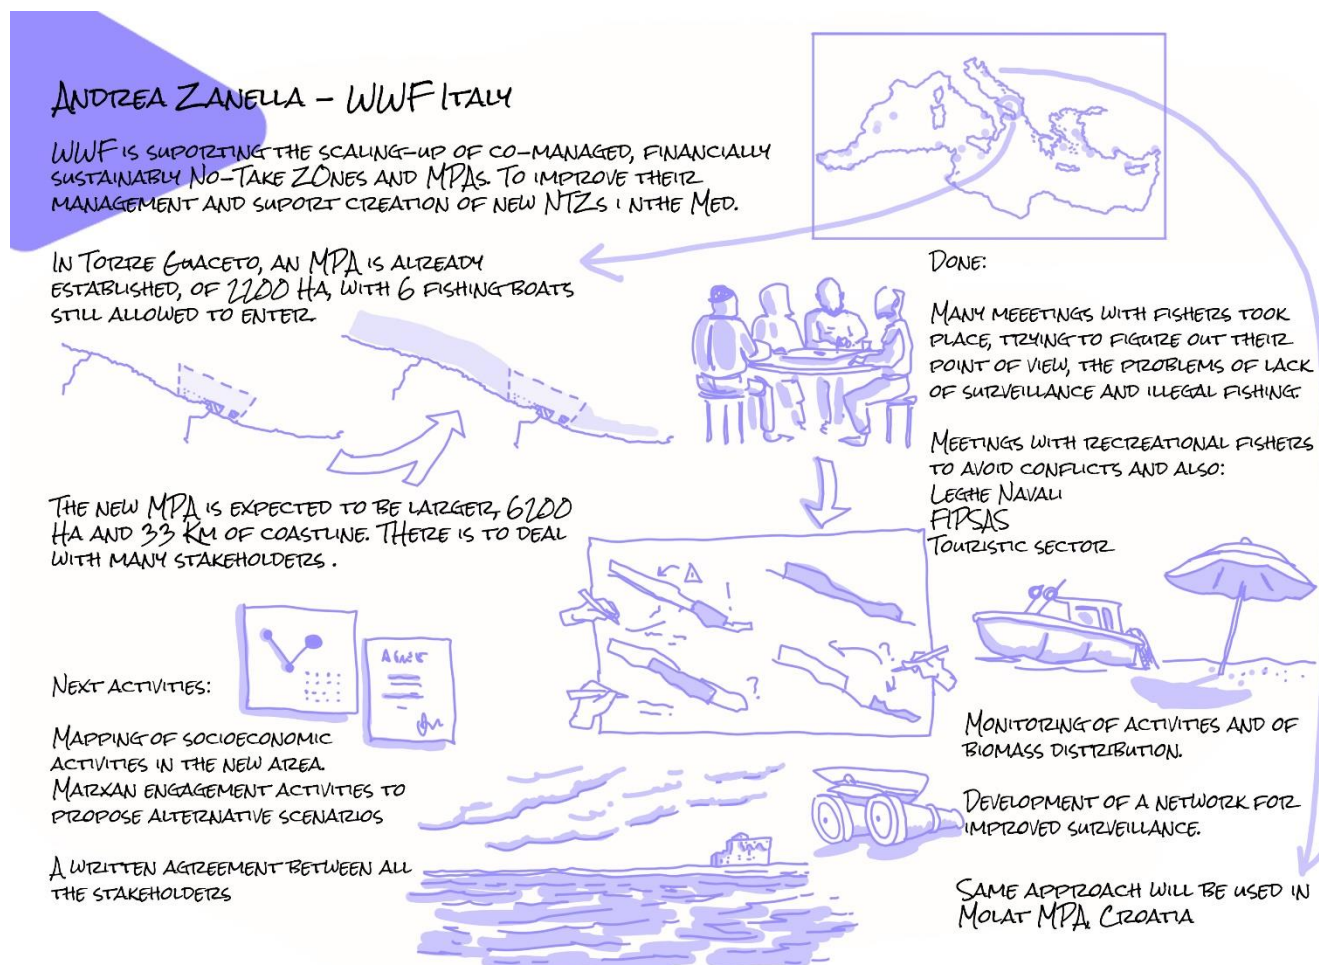 Andrea Zanella – WWF Italy
WWF is suporting the scaling-up of co-managed, financially
sustainably No-Take ZOnes and MPAs. To improve their
management and suport creation of new NTZs i nthe Med.
In Torre Guaceto, an MPA is already
established, of 2200 Ha, with 6 fishing boats
still allowed to enter
The new MPA is expected to be larger, 6200
Ha and 33 Km of coastline. THere is to deal
with many stakeholders .
Next activities:
Mapping of socioeconomic
activities in the new area.
Marxan engagement activities to
propose alternative scenarios
A written agreement between all
the stakeholders
Done:
Many meeetings with fishers took
place, trying to figure out their
point of view, the problems of lack
of surveillance and illegal fishing.
Meetings with recreational fishers
to avoid conflicts and also:
Leghe Navali
FIPSAS
Touristic sector
Monitoring of activities and of
biomass distribution.
Development of a network for
improved surveillance.
Same approach will be used in
Molat MPA, Croatia